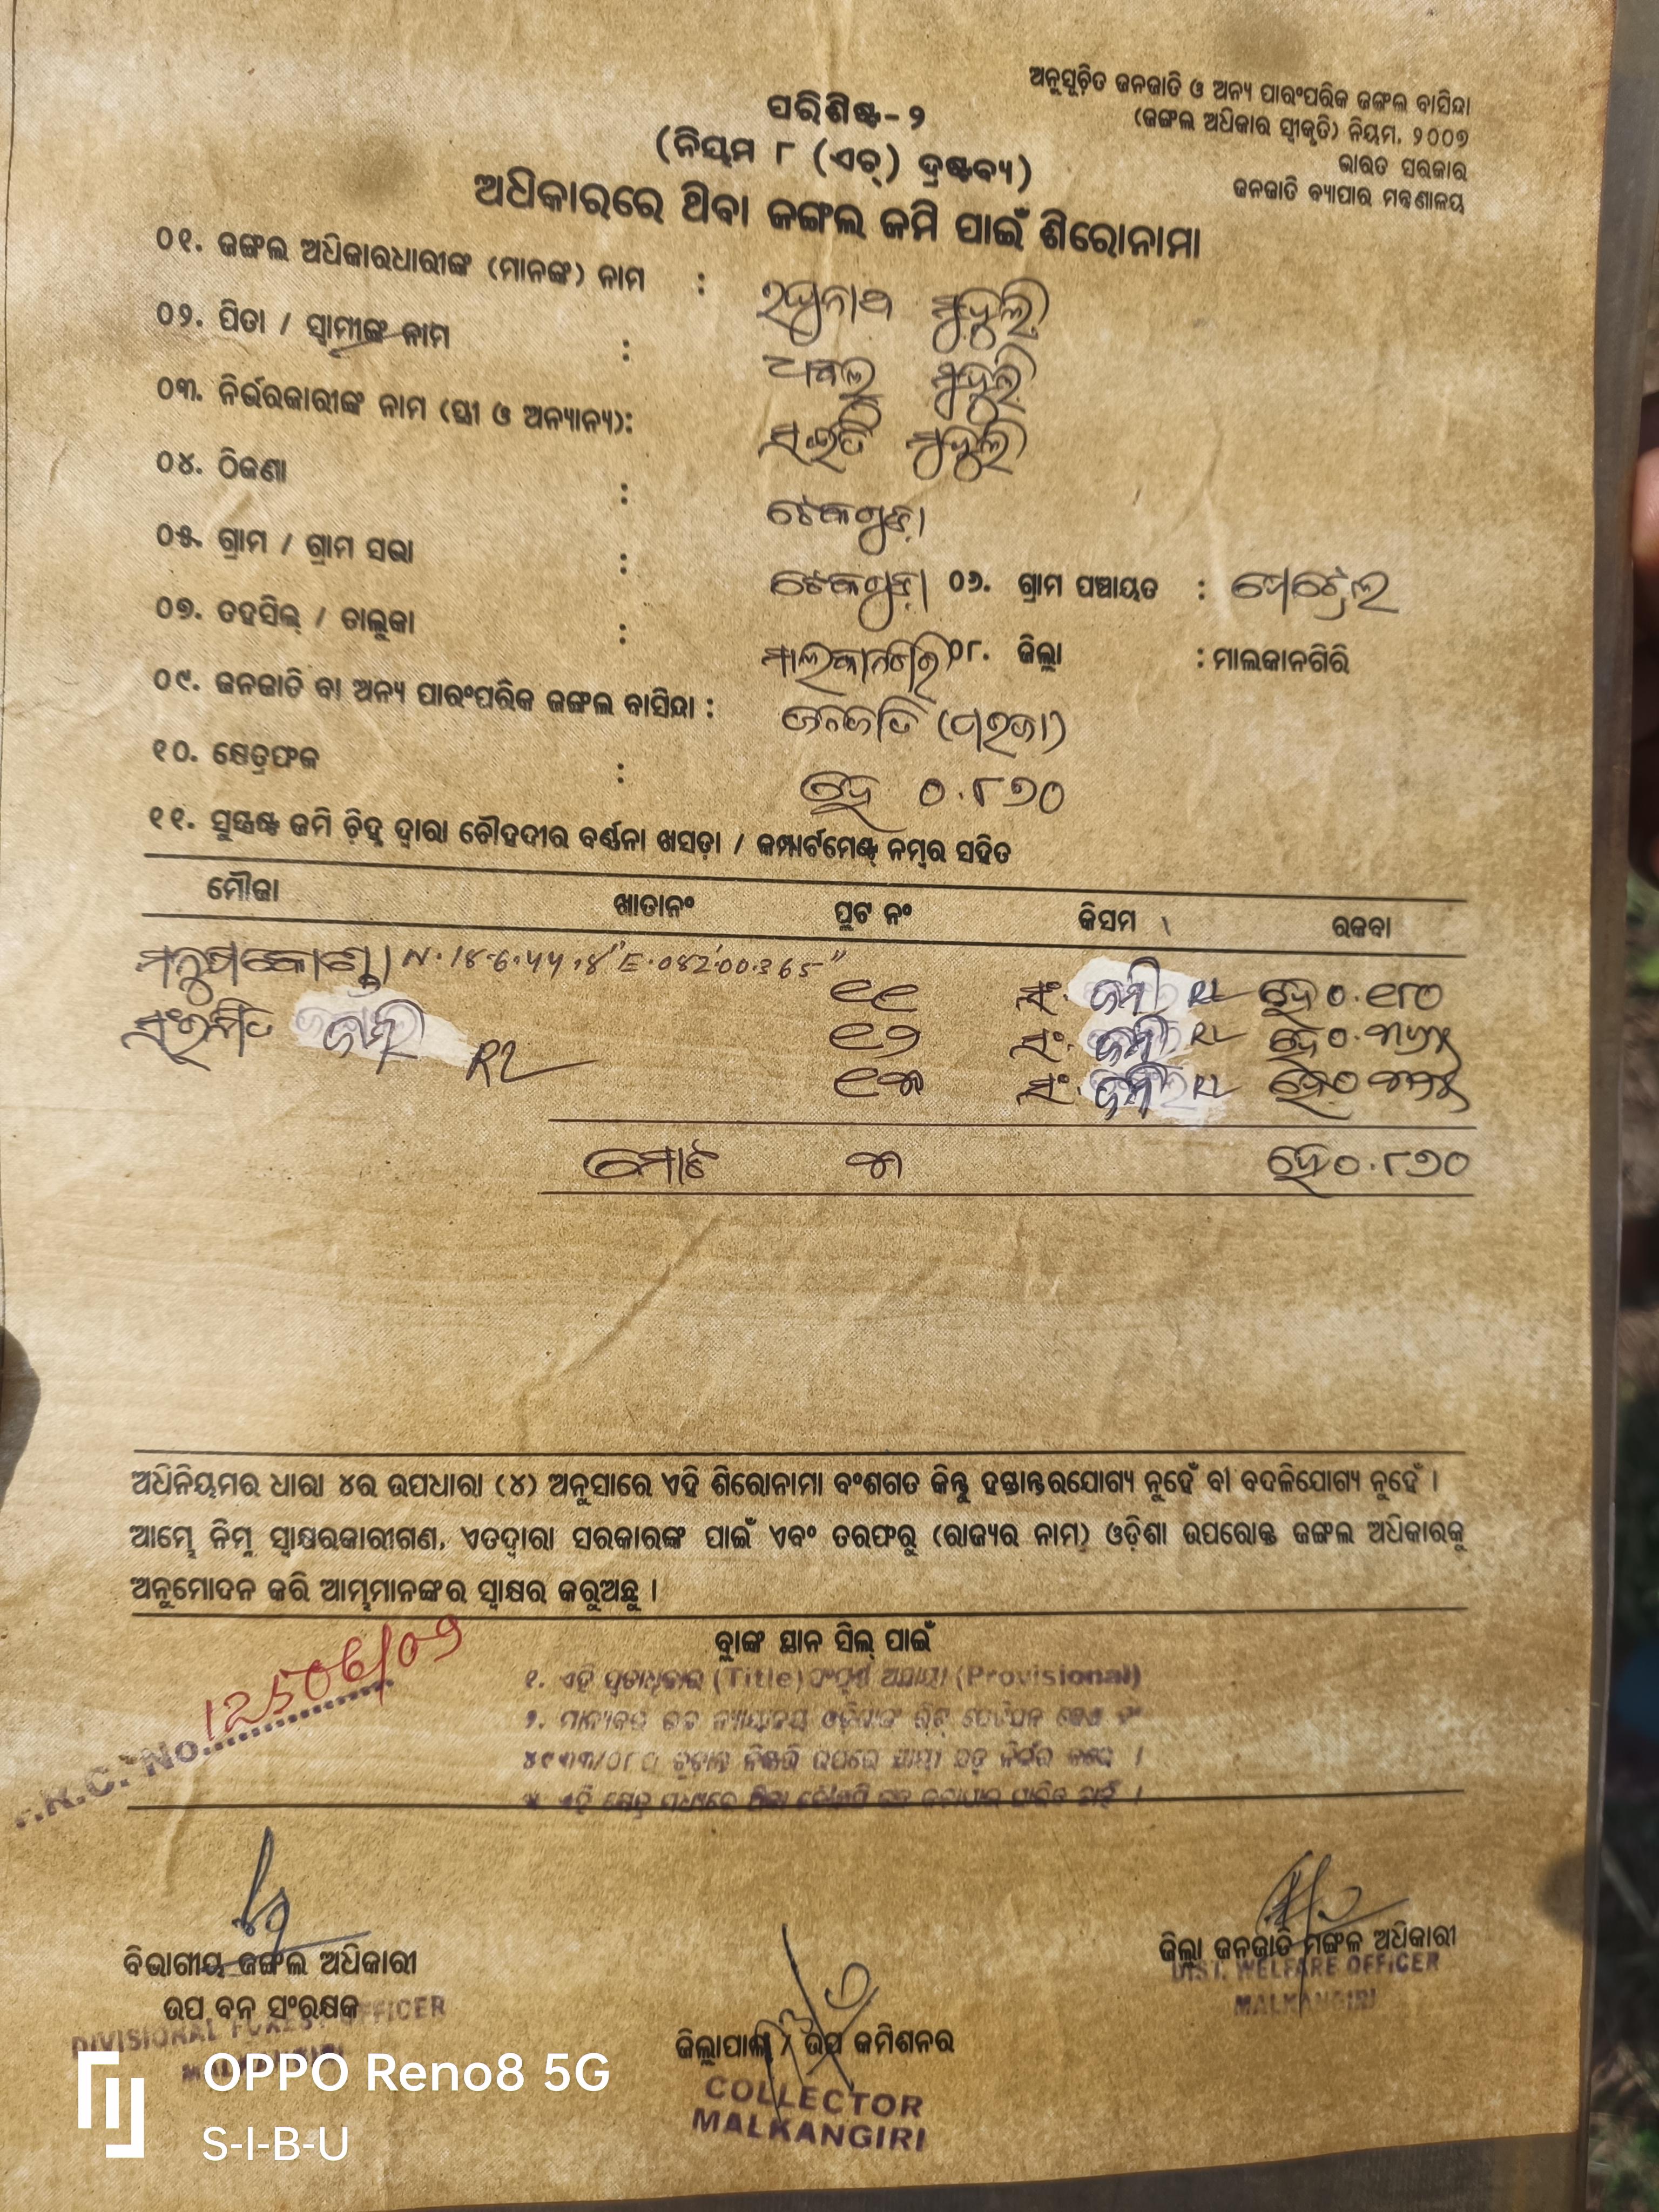 ଅନୁସୂଚିତ ଜନଜାତି ଓ ଅନ୍ୟ ପାରଂପରିକ ଜଙ୍ଗଲ ବାସିନ୍ଦା
(ଜଙ୍ଗଲ ଅଧିକାର ସ୍ୱୀକୃତି) ନିୟମ, ୨୦୦୭
ଭାରତ ସରକାର
ଜନଜାତି ବ୍ୟାପାର ମନ୍ତ୍ରଣାଳୟ
ପରିଶିଷ୍ଟ-୨
(ନିୟମ ୮ (ଏଚ୍) ଦ୍ରଷ୍ଟବ୍ୟ)
ଅଧିକାରରେ ଥିବା ଜଙ୍ଗଲ ଜମି ପାଇଁ ଶିରୋନାମା
୦୧. ଜଙ୍ଗଲ ଅଧିକାରଧାରୀଙ୍କ (ମାନଙ୍କ) ନାମ : ରଘୁନାଥ ମୁଦୁଲି
୦୨. ପିତା / ସ୍ୱାମୀଙ୍କ ନାମ : ମୁଦୁଲି
୦୩. ନିର୍ଭରକାରୀଙ୍କ ନାମ (ସ୍ତ୍ରୀ ଓ ଅନ୍ୟାନ୍ୟ): ମୁଦୁଲି
୦୪. ଠିକଣା : ଟେକଗୁଡ଼ା
୦୫. ଗ୍ରାମ / ଗ୍ରାମ ସଭା : ଟେକଗୁଡ଼ା ୦୬. ଗ୍ରାମ ପଞ୍ଚାୟତ :
୦୭. ତହସିଲ୍ / ତାଲୁକା : ମାଲକାନଗିରି ୦୮. ଜିଲ୍ଲା : ମାଲକାନଗିରି
୦୯. ଜନଜାତି ବା ଅନ୍ୟ ପାରଂପରିକ ଜଙ୍ଗଲ ବାସିନ୍ଦା : ଜନଜାତି (ପରଜା)
୧୦. କ୍ଷେତ୍ରଫଳ : ହେ ୦.୮୭୦
୧୧. ସୁସ୍ପଷ୍ଟ ଜମି ଚିହ୍ନ ଦ୍ୱାରା ଚୌହଦୀର ବର୍ଣ୍ଣନା ଖସଡ଼ା / କମ୍ପାର୍ଟମେଣ୍ଟ୍ ନମ୍ବର ସହିତ
ମୌଜା ଖାତାନଂ ପ୍ଲଟ ନଂ କିସମ ରକବା
୧୧ ସଂ. ଜମି RL ହେ ୦.୧୮୦
ସଂରକ୍ଷିତ ଜମି RL ୧୨ ସଂ. ଜମି RL ହେ ୦.
୧୩ ସଂ. ଜମି RL ହେ ୦.
ମୋଟ ୩ ହେ ୦.୮୭୦
ଅଧିନିୟମର ଧାରା ୪ର ଉପଧାରା (୪) ଅନୁସାରେ ଏହି ଶିରୋନାମା ବଂଶଗତ କିନ୍ତୁ ହସ୍ତାନ୍ତରଯୋଗ୍ୟ ନୁହେଁ ବା ବଦଳିଯୋଗ୍ୟ ନୁହେଁ ।
ଆମ୍ଭେ ନିମ୍ନ ସ୍ୱାକ୍ଷରକାରୀଗଣ, ଏତଦ୍ୱାରା ସରକାରଙ୍କ ପାଇଁ ଏବଂ ତରଫରୁ (ରାଜ୍ୟର ନାମ) ଓଡ଼ିଶା ଉପରୋକ୍ତ ଜଙ୍ଗଲ ଅଧିକାରକୁ
ଅନୁମୋଦନ କରି ଆମ୍ଭମାନଙ୍କର ସ୍ୱାକ୍ଷର କରୁଅଛୁ ।
ବ୍ଲାଙ୍କ ସ୍ଥାନ ସିଲ୍ ପାଇଁ
No. 12506/09
୧. ଏହି (Title) (Provisional)
ବିଭାଗୀୟ ଜଙ୍ଗଲ ଅଧିକାରୀ
ଉପ ବନ ସଂରକ୍ଷକ
DIVISIONAL FOREST OFFICER
ଜିଲ୍ଲାପାଳ / ଉପ କମିଶନର
COLLECTOR
MALKANGIRI
ଜିଲ୍ଲା ଜନଜାତି ମଙ୍ଗଳ ଅଧିକାରୀ
DIST. WELFARE OFFICER
MALKANGIRI
OPPO Reno8 5G
S-I-B-U